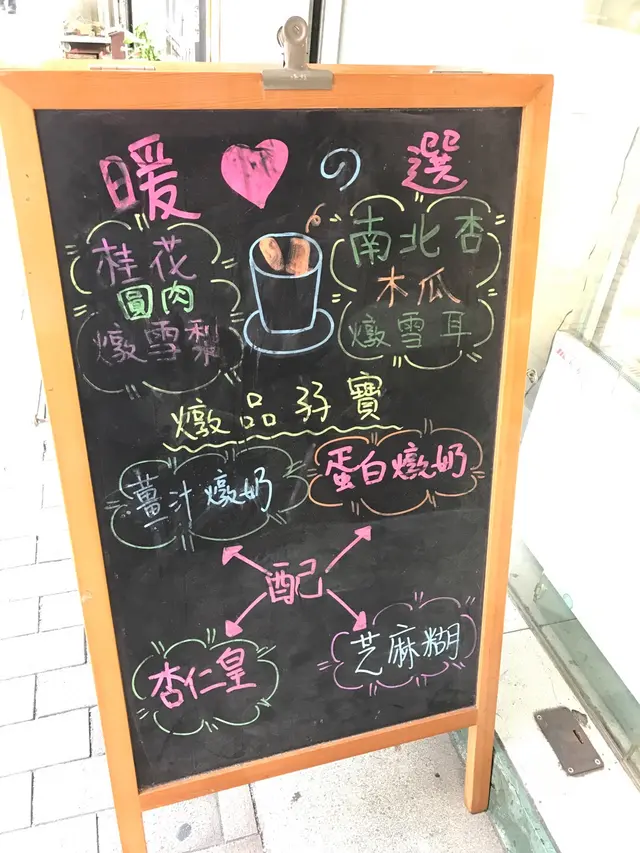 暖 の 選
桂花
圓肉
燉雪梨
南北杏
木瓜
燉雪耳
燉品孖寶
薑汁燉奶
蛋白燉奶
配
杏仁皇
芝麻糊